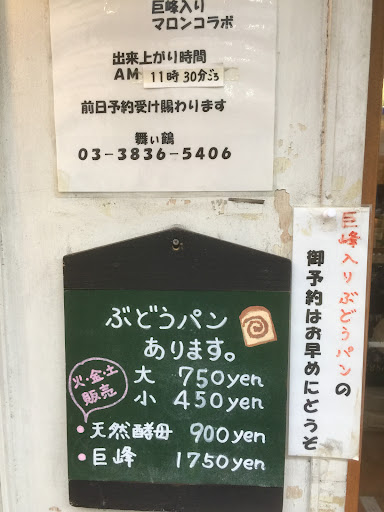 巨峰入り
マロンコラボ
出来上がり時間
AM 11時30分ごろ
前日予約受け賜わります
舞い鶴
03-3836-5406
巨峰入りぶどうパンの
御予約はお早めにどうぞ
ぶどうパン
あります。
大 750yen
小 450yen
火・金・土
販売
・天然酵母 900yen
・巨峰 1750yen